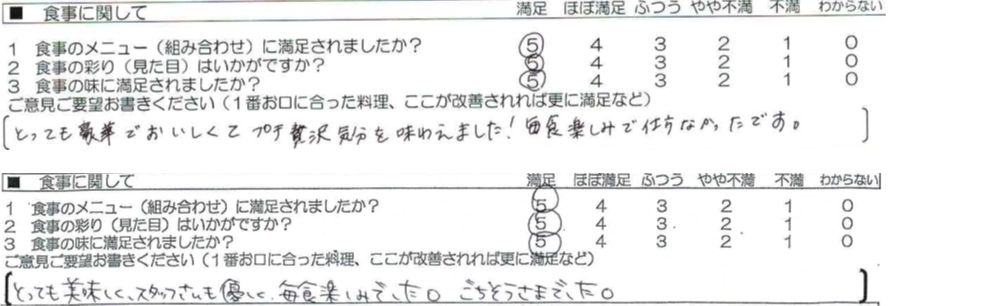 ■ 食事に関して 満足 ほぼ満足 ふつう やや不満 不満 わからない
1 食事のメニュー（組み合わせ）に満足されましたか？ 5 4 3 2 1 0
2 食事の彩り（見た目）はいかがですか？ 5 4 3 2 1 0
3 食事の味に満足されましたか？ 5 4 3 2 1 0
ご意見ご要望お書きください（１番お口に合った料理、ここが改善されれば更に満足など）
とっても豪華でおいしくてプチ贅沢気分を味わえました！毎食楽しみで仕方なかったです。
■ 食事に関して 満足 ほぼ満足 ふつう やや不満 不満 わからない
1 食事のメニュー（組み合わせ）に満足されましたか？ 5 4 3 2 1 0
2 食事の彩り（見た目）はいかがですか？ 5 4 3 2 1 0
3 食事の味に満足されましたか？ 5 4 3 2 1 0
ご意見ご要望お書きください（１番お口に合った料理、ここが改善されれば更に満足など）
とっても美味しく、スタッフさんも優しく、毎食楽しみでした。ごちそうさまでした。